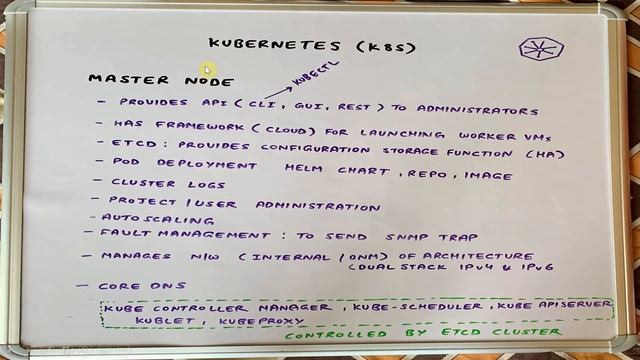 KUBERNETES (K8S)
MASTER NODE
KUBECTL
- PROVIDES API (CLI, GUI, REST) TO ADMINISTRATORS
- HAS FRAMEWORK (CLOUD) FOR LAUNCHING WORKER VMs
- ETCD : PROVIDES CONFIGURATION STORAGE FUNCTION (HA)
- POD DEPLOYMENT HELM CHART, REPO, IMAGE
- CLUSTER LOGS
- PROJECT/USER ADMINISTRATION
- AUTOSCALING
- FAULT MANAGEMENT : TO SEND SNMP TRAP
- MANAGES N/W (INTERNAL/ONM) OF ARCHITECTURE
(DUAL STACK IPv4 & IPv6
- CORE DNS
KUBE CONTROLLER MANAGER, KUBE-SCHEDULER, KUBE APISERVER
KUBLET, KUBEPROXY
CONTROLLED BY ETCD CLUSTER